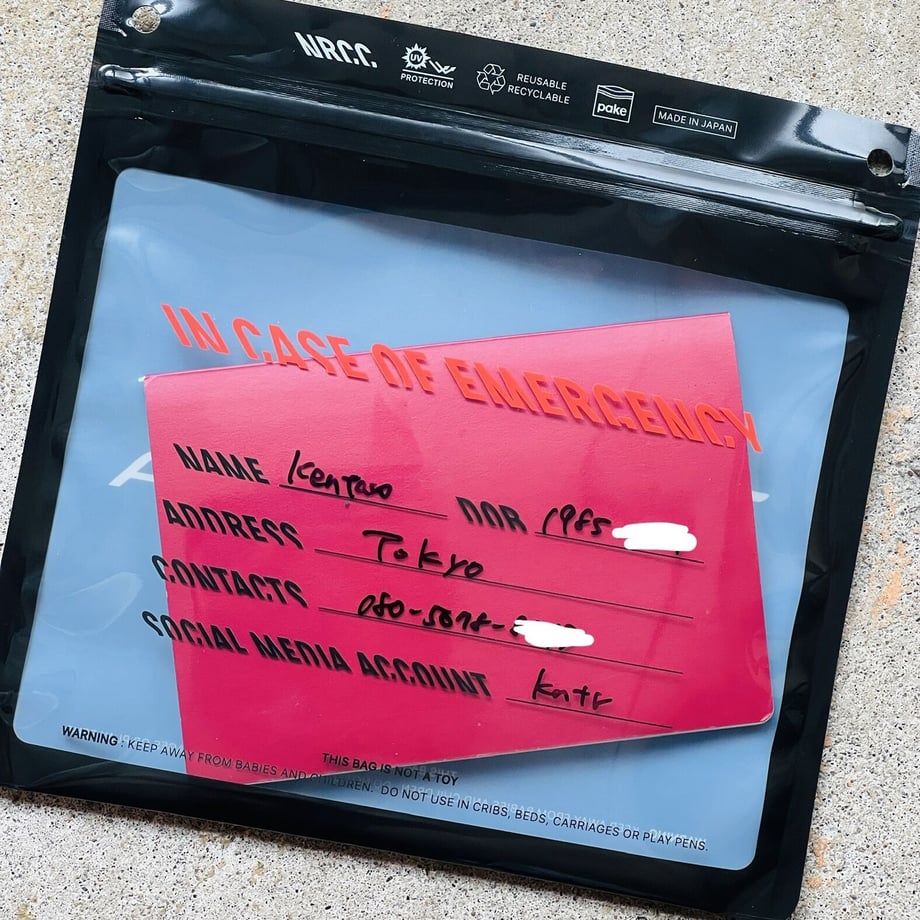 NRCC.
UV PROTECTION
REUSABLE RECYCLABLE
pake
MADE IN JAPAN
IN CASE OF EMERGENCY
NAME Kentaro DOB 1985
ADDRESS Tokyo
CONTACTS 080-5678-
SOCIAL MEDIA ACCOUNT kntr
THIS BAG IS NOT A TOY
WARNING : KEEP AWAY FROM BABIES AND CHILDREN. DO NOT USE IN CRIBS, BEDS, CARRIAGES OR PLAY PENS.